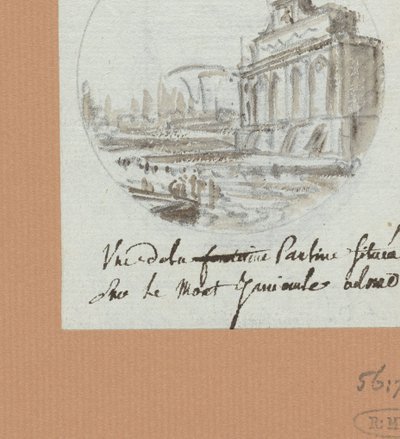 Vue de la fontaine Pauline située
sur le Mont Janicule à
56:7
R:M